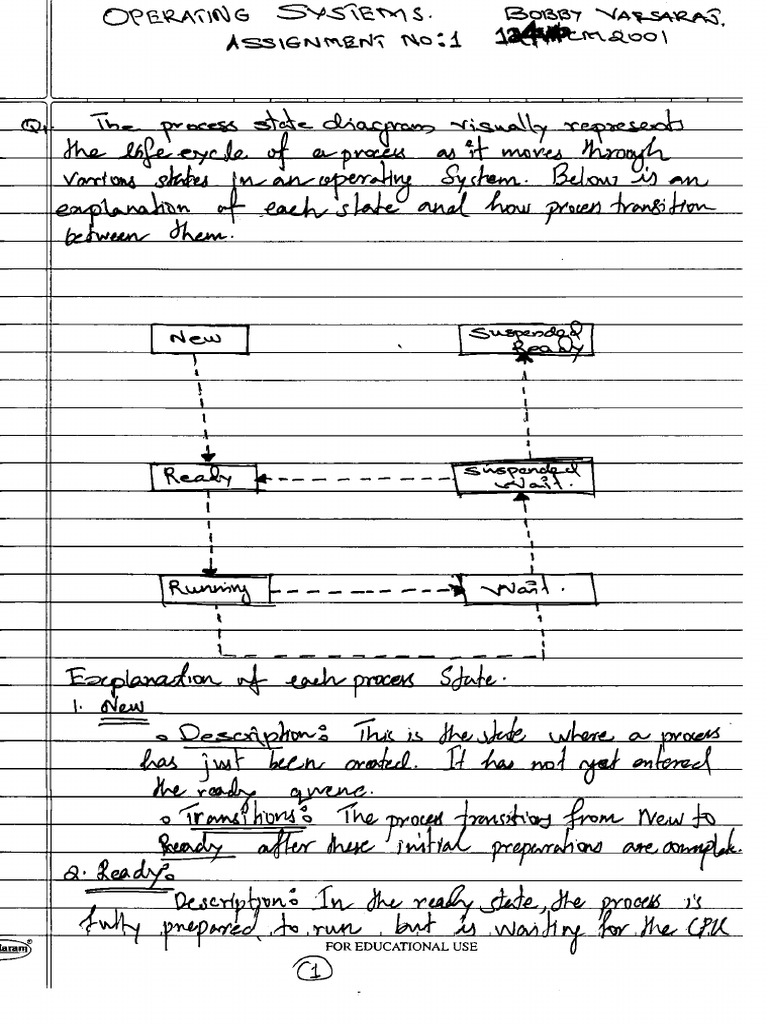 OPERATING SYSTEMS. BOBBY VARSARAJ.
ASSIGNMENT NO:1 CM2001
Q1. The process state diagram visually represents
the life cycle of a process as it moves through
various states in an operating System. Below is an
explanation of each state and how process transition
between them.
New Suspended Ready
Ready Suspended Wait.
Running Wait.
Explanation of each process State.
1. New
Description: This is the state where a process
has just been created. It has not yet entered
the ready queue.
Transitions: The process transitions from New to
Ready after these initial preparations are complete.
2. Ready:
Description: In the ready state, the process is
fully prepared to run, but is waiting for the CPU
FOR EDUCATIONAL USE
1